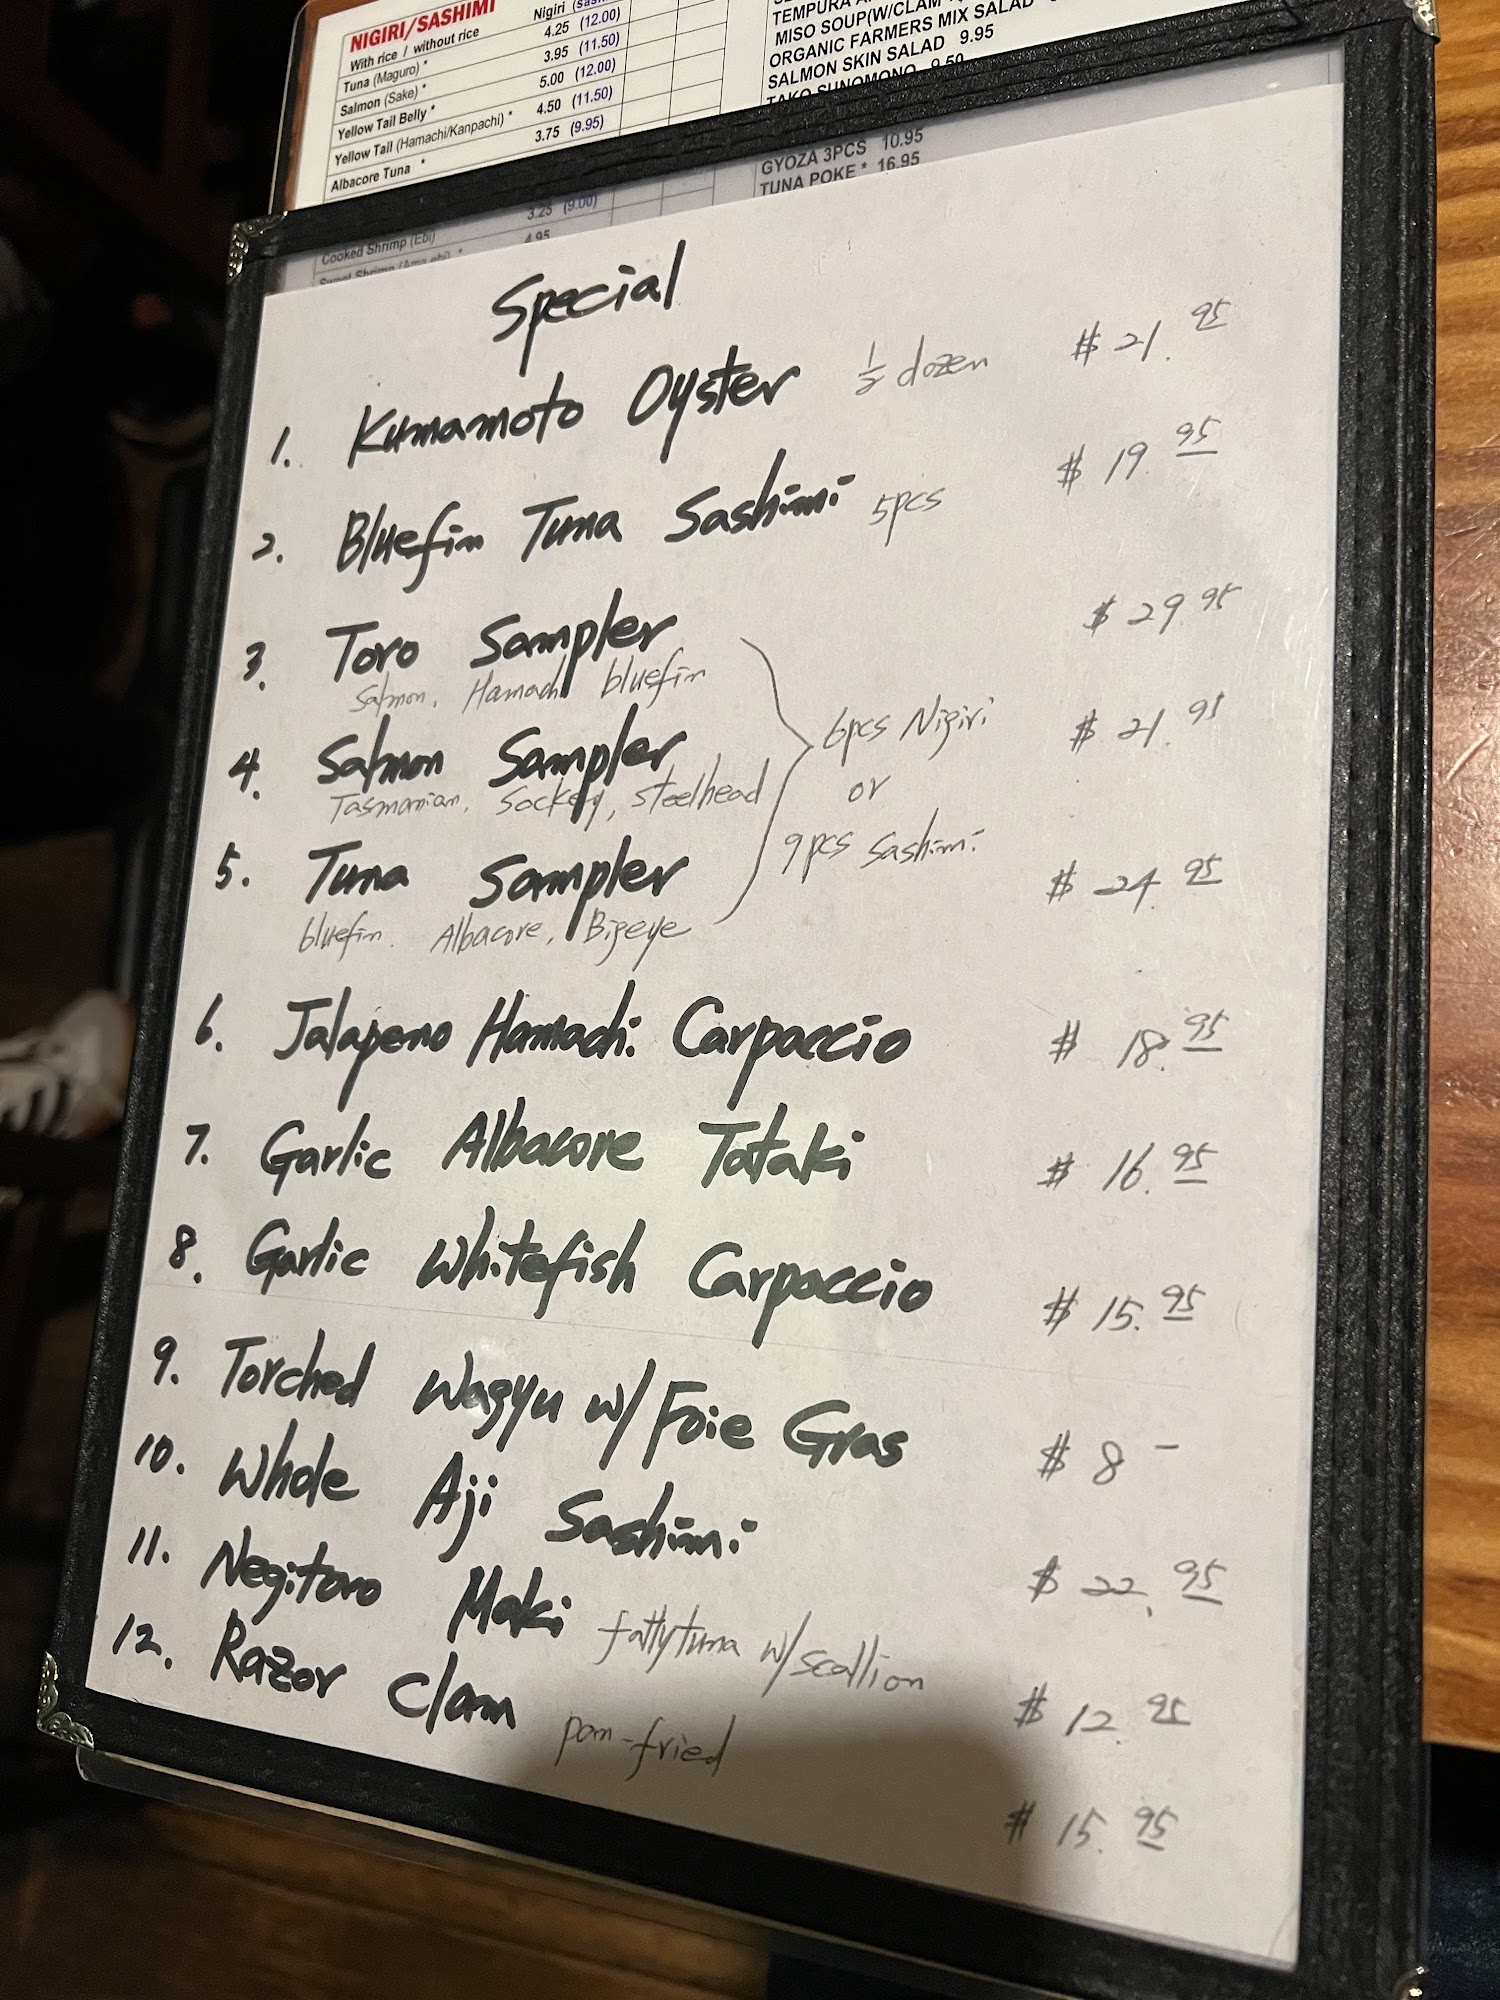 NIGIRI/SASHIMI
With rice / without rice Nigiri
Tuna (Maguro) * 4.25 (12.00)
Salmon (Sake) * 3.95 (11.50)
Yellow Tail Belly * 5.00 (12.00)
Yellow Tail (Hamachi/Kanpachi) * 4.50 (11.50)
Albacore Tuna * 3.75 (9.95)
3.25 (9.00)
Cooked Shrimp (Ebi) 4.95
TEMPURA
MISO SOUP(W/CLAM
ORGANIC FARMERS MIX SALAD
SALMON SKIN SALAD 9.95
TAKO SUNOMONO 9.50
GYOZA 3PCS 10.95
TUNA POKE * 16.95
Special
1. Kumamoto Oyster 1/2 dozen $21.95
2. Bluefin Tuna Sashimi 5pcs $19.95
3. Toro Sampler $29.95
Salmon, Hamachi bluefin
4. Salmon Sampler $21.95
Tasmanian, Sockey, steelhead
5. Tuna Sampler $24.95
bluefin. Albacore, Bigeye
6pcs Nigiri
or
9pcs Sashimi
6. Jalapeno Hamachi Carpaccio $18.95
7. Garlic Albacore Tataki $16.95
8. Garlic Whitefish Carpaccio $15.95
9. Torched Wagyu w/ Foie Gras $8 –
10. Whole Aji Sashimi $22.95
11. Negitoro Maki fatty tuna w/ scallion $12.95
12. Razor Clam pan-fried $15.95